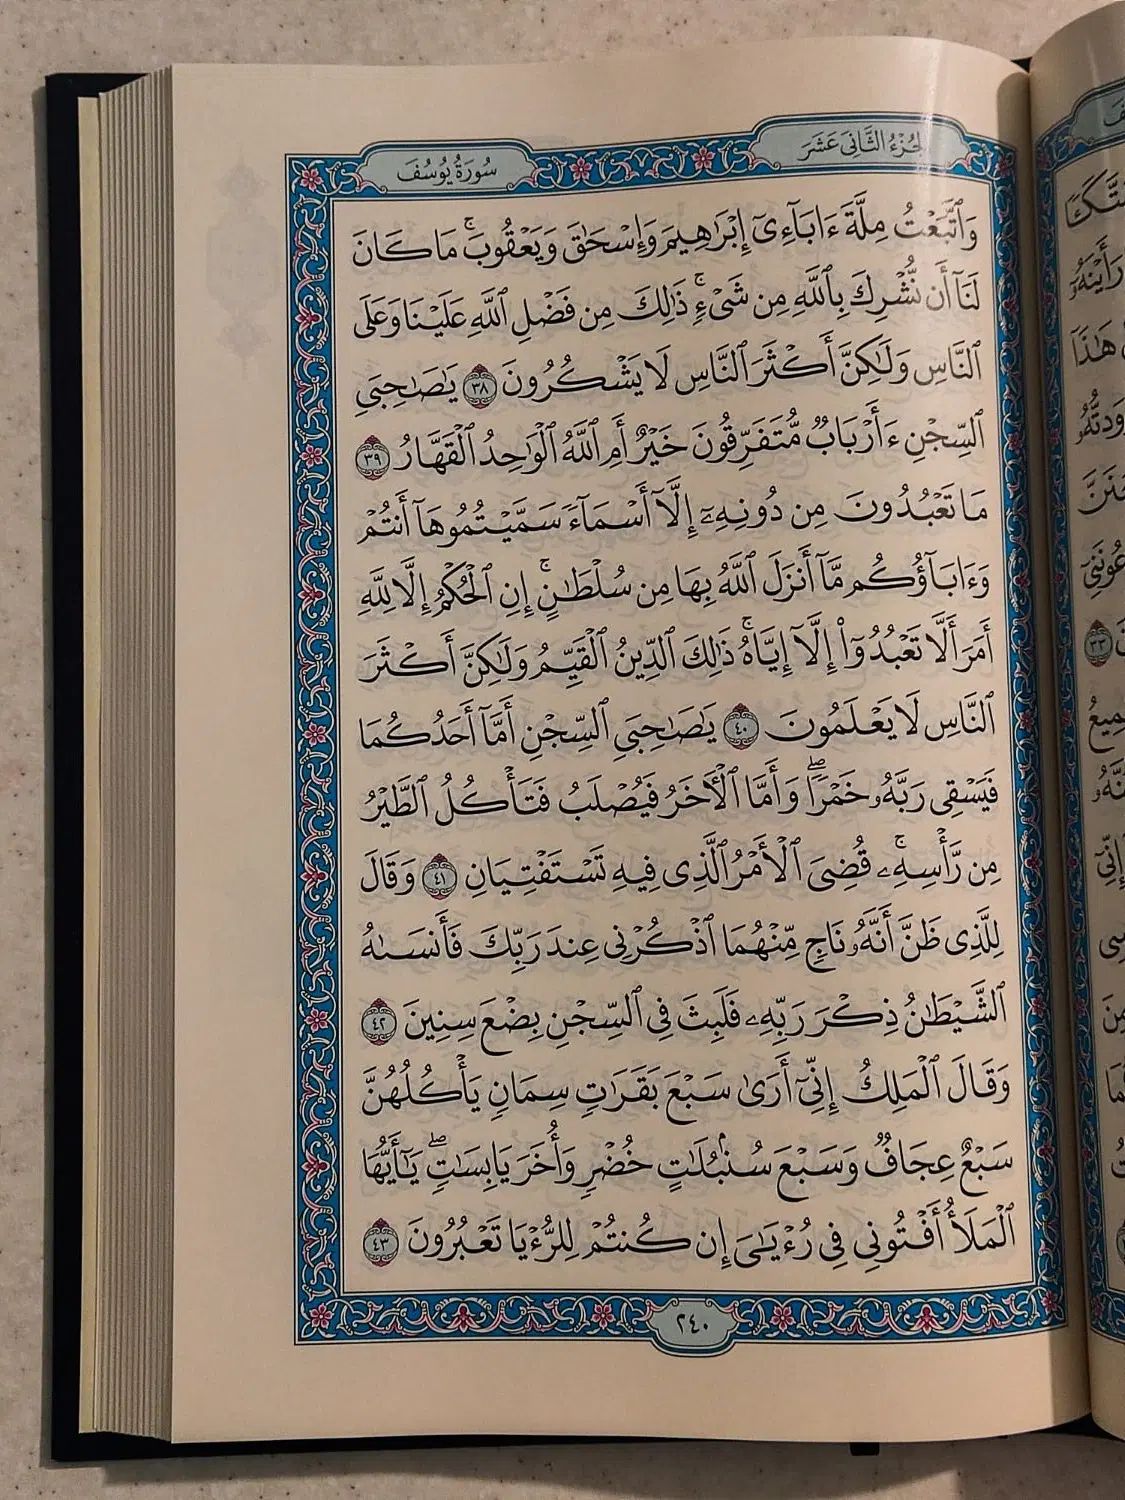 سُورَةُ يُوسُفَ
الجُزْءُ الثَّانِي عَشَرَ
وَٱتَّبَعْتُ مِلَّةَ ءَابَآءِىٓ إِبْرَٰهِيمَ وَإِسْحَٰقَ وَيَعْقُوبَۚ مَا كَانَ
لَنَآ أَن نُّشْرِكَ بِٱللَّهِ مِن شَىْءٍۚ ذَٰلِكَ مِن فَضْلِ ٱللَّهِ عَلَيْنَا وَعَلَى
ٱلنَّاسِ وَلَٰكِنَّ أَكْثَرَ ٱلنَّاسِ لَا يَشْكُرُونَ ٣٨ يَٰصَٰحِبَىِ
ٱلسِّجْنِ ءَأَرْبَابٌ مُّتَفَرِّقُونَ خَيْرٌ أَمِ ٱللَّهُ ٱلْوَٰحِدُ ٱلْقَهَّارُ ٣٩
مَا تَعْبُدُونَ مِن دُونِهِۦٓ إِلَّآ أَسْمَآءً سَمَّيْتُمُوهَآ أَنتُمْ
وَءَابَآؤُكُم مَّآ أَنزَلَ ٱللَّهُ بِهَا مِن سُلْطَٰنٍۚ إِنِ ٱلْحُكْمُ إِلَّا لِلَّهِ
أَمَرَ أَلَّا تَعْبُدُوٓا۟ إِلَّآ إِيَّاهُۚ ذَٰلِكَ ٱلدِّينُ ٱلْقَيِّمُ وَلَٰكِنَّ أَكْثَرَ
ٱلنَّاسِ لَا يَعْلَمُونَ ٤٠ يَٰصَٰحِبَىِ ٱلسِّجْنِ أَمَّآ أَحَدُكُمَا
فَيَسْقِى رَبَّهُۥ خَمْرًاۖ وَأَمَّا ٱلْأٓخَرُ فَيُصْلَبُ فَتَأْكُلُ ٱلطَّيْرُ
مِن رَّأْسِهِۦۚ قُضِىَ ٱلْأَمْرُ ٱلَّذِى فِيهِ تَسْتَفْتِيَانِ ٤١ وَقَالَ
لِلَّذِى ظَنَّ أَنَّهُۥ نَاجٍ مِّنْهُمَا ٱذْكُرْنِى عِندَ رَبِّكَ فَأَنسَىٰهُ
ٱلشَّيْطَٰنُ ذِكْرَ رَبِّهِۦ فَلَبِثَ فِى ٱلسِّجْنِ بِضْعَ سِنِينَ ٤٢
وَقَالَ ٱلْمَلِكُ إِنِّىٓ أَرَىٰ سَبْعَ بَقَرَٰتٍ سِمَانٍ يَأْكُلُهُنَّ
سَبْعٌ عِجَافٌ وَسَبْعَ سُنۢبُلَٰتٍ خُضْرٍ وَأُخَرَ يَابِسَٰتٍۖ يَٰٓأَيُّهَا
ٱلْمَلَأُ أَفْتُونِى فِى رُءْيَٰىَ إِن كُنتُمْ لِلرُّءْيَا تَعْبُرُونَ ٤٣
٢٤٠
رَأَيْنَهُۥ
هَٰذَا
٣٣